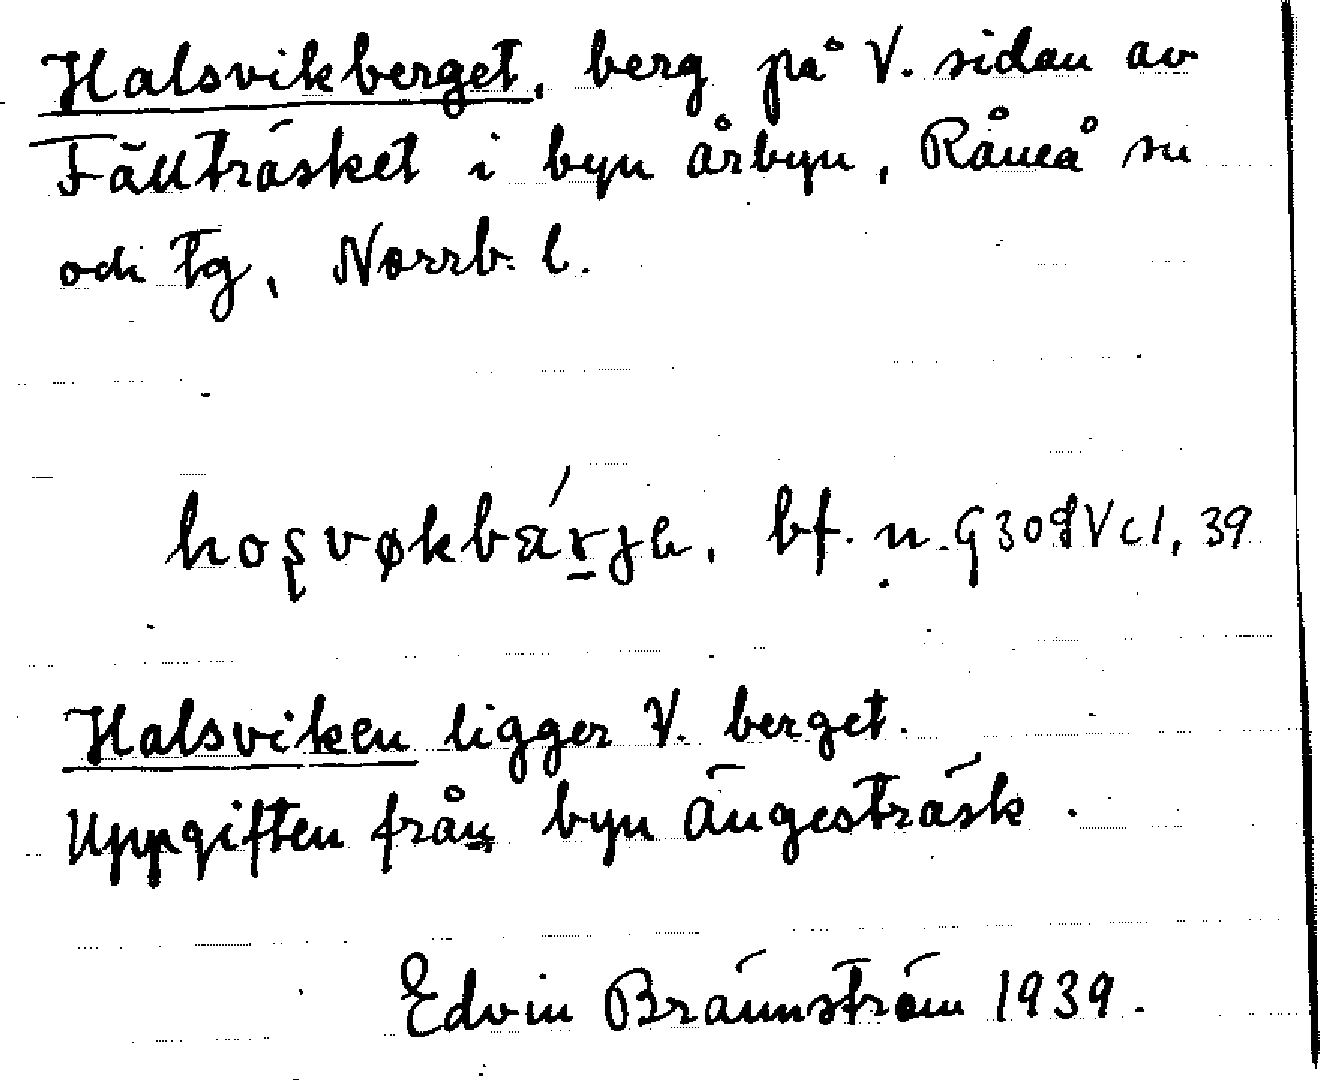 Halsvikberget, berg på V. sidan av
Fällträsket i byn Årbyn, Råneå sn
och tg, Norrb. l.
bf. n. G309Vc1, 39
Halsviken ligger V. berget.
Uppgiften från byn Ängesträsk.
Edvin Brännström 1939.